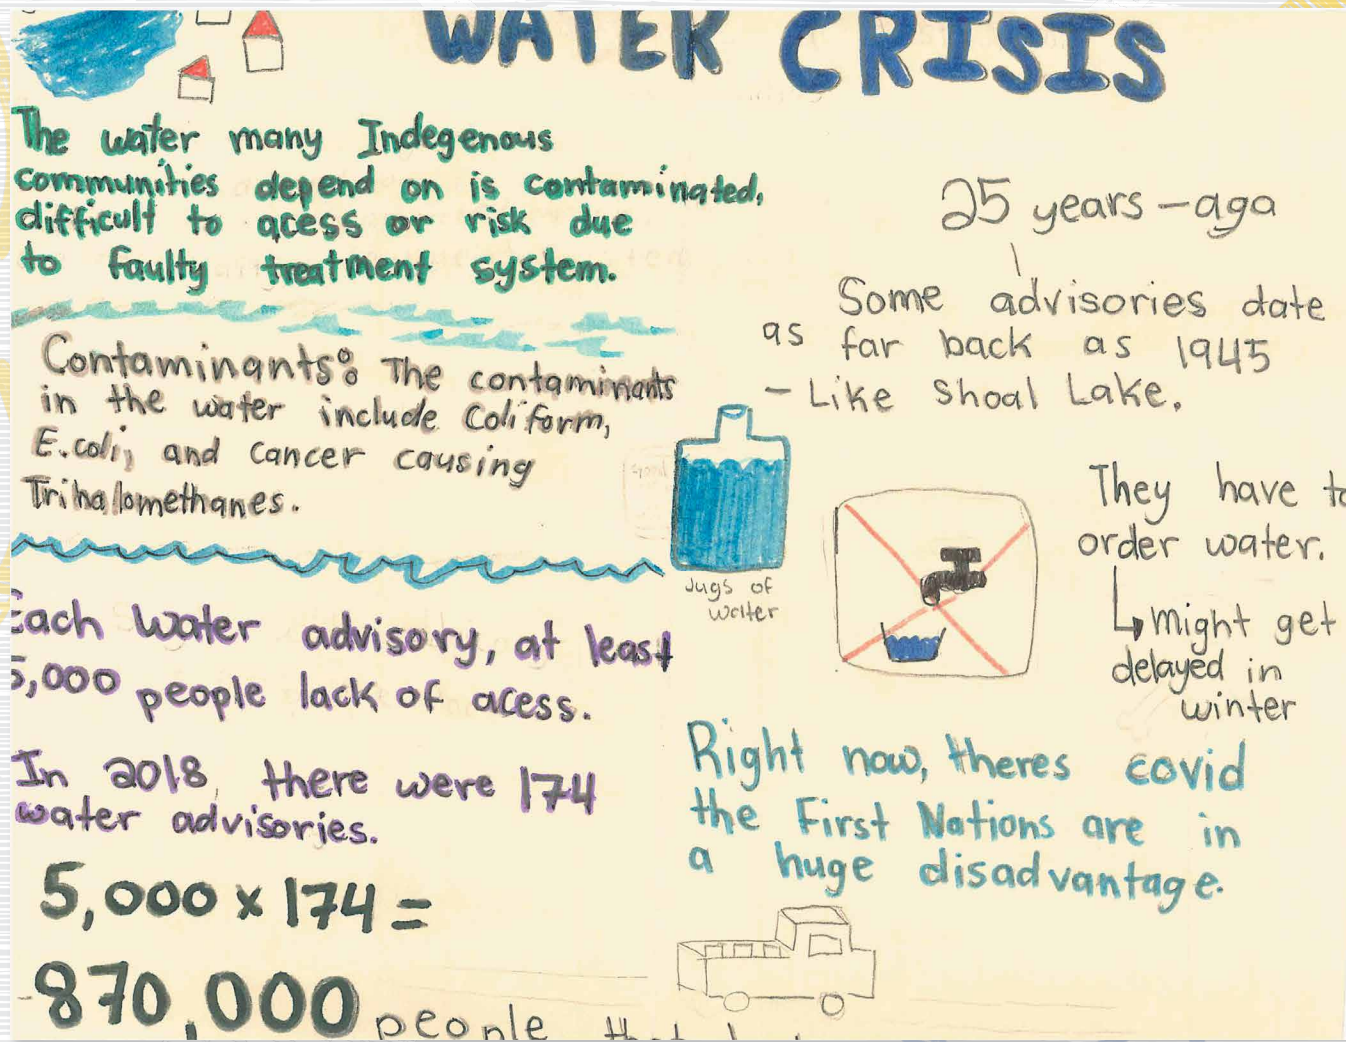 WATER CRISIS
The water many Indegenous
communities depend on is contaminated,
difficult to acess or risk due
to faulty treatment system.
Contaminants: The contaminants
in the water include Coliform,
E.coli, and cancer causing
Trihalomethanes.
Each water advisory, at least
5,000 people lack of acess.
In 2018, there were 174
water advisories.
5,000 x 174 =
870,000 people that
25 years - aga
Some advisories date
as far back as 1945
- Like Shoal Lake.
Jugs of
water
They have to
order water.
might get
delayed in
winter
Right now, theres covid
the First Nations are in
a huge disadvantage.